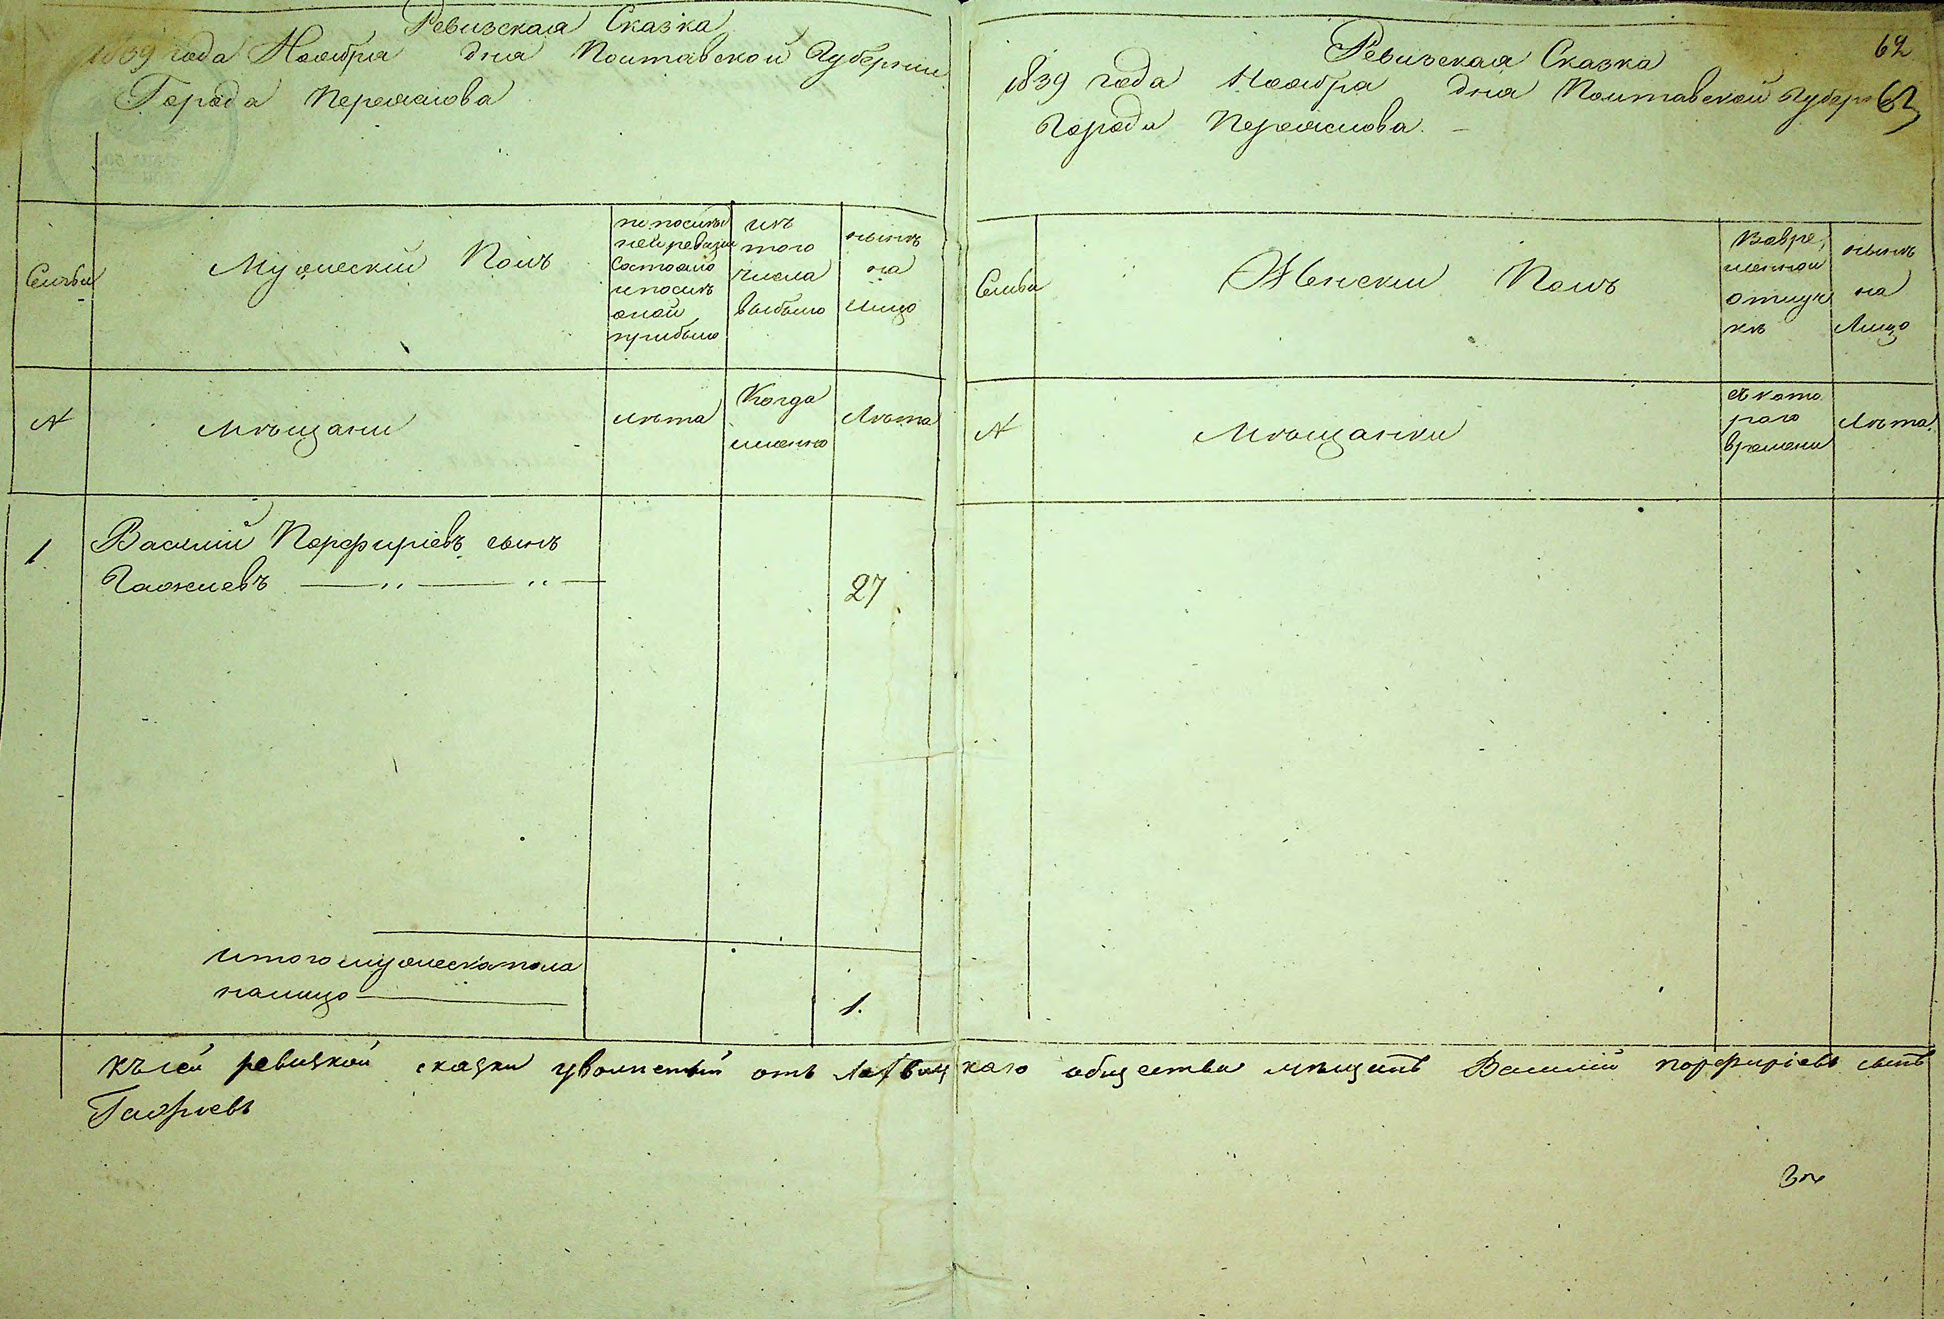 Ревизская Сказка
1839 года Ноября дня Полтавской Губернии
Города Переяслова
Семьи
Мужеский Полъ
по послѣд
ней ревизии
состояло
и послѣ
оной
прибыло
изъ
того
числа
выбыло
нынѣ
на
лицо
№
Мѣщани
лѣта
Когда
именно
Лѣта
1
Василий Порфиріевъ сынъ
27
итого мужеска пола
налицо
1.
62
Ревизская Сказка
1839 года Ноября дня Полтавской Губерн
Города Переяслова.
Семьи
Женски Полъ
Вовре,
менной
отлуч
кѣ
нынѣ
на
Лицо
№
Мѣщанки
съ кото
раго
времени
Лѣта.
Къ сей ревизкой сказки уволнений отъ каго общества мѣщанъ Василий порфиріевъ сынъ